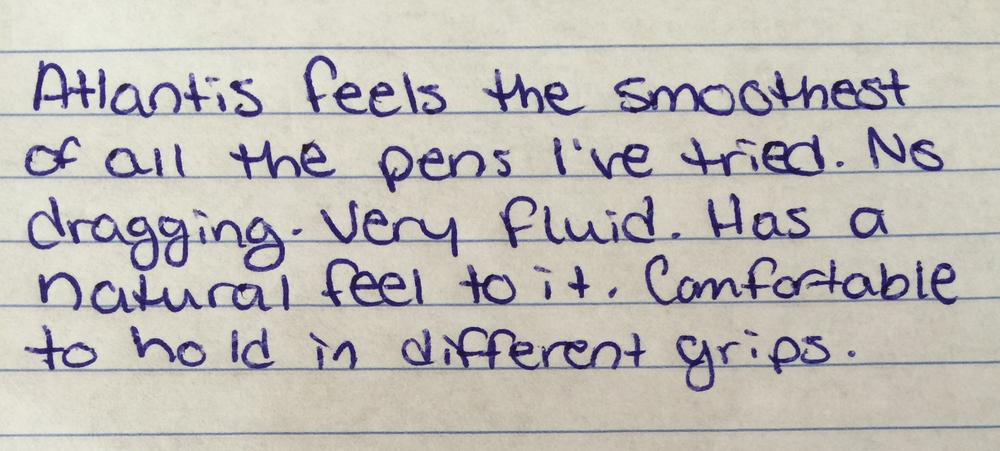 Atlantis feels the smoothest
of all the pens I've tried. No
dragging. Very fluid. Has a
natural feel to it. Comfortable
to hold in different grips.